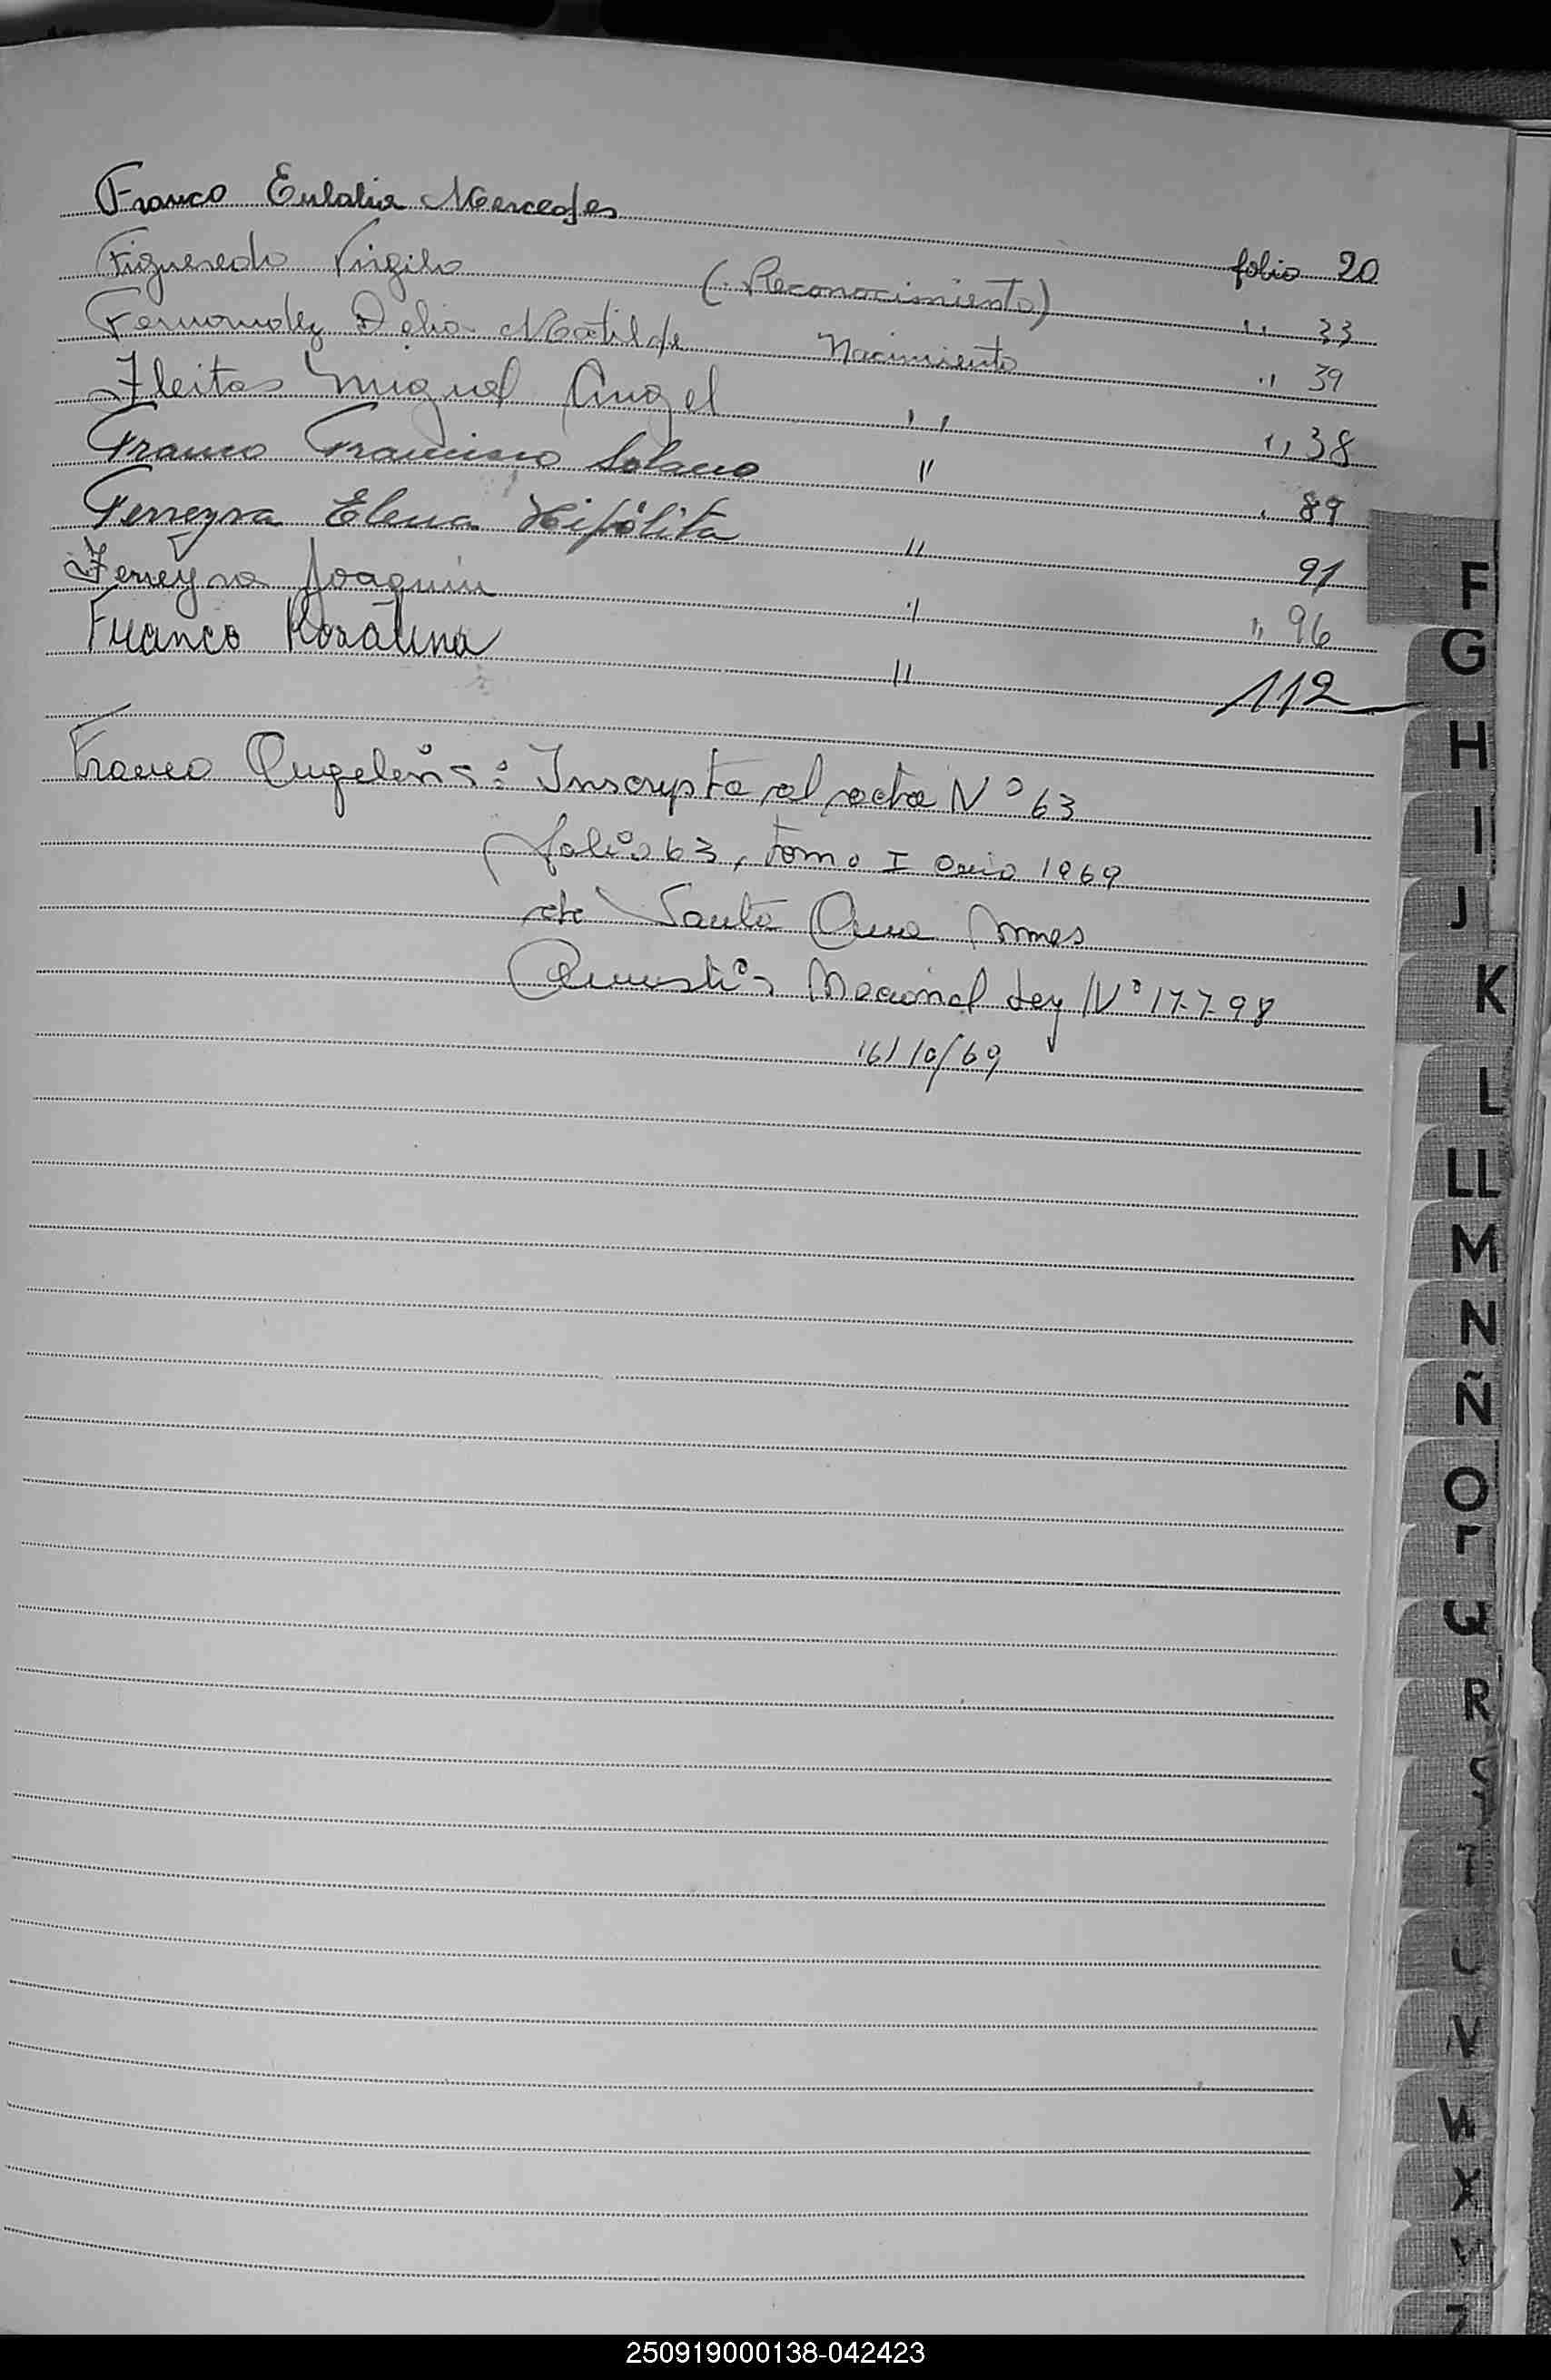 Franco Eulalia Mercedes folio 20
Figueredo Virgilio (Reconocimiento) " 33
Fernandez Delia Matilde Nacimiento " 39
Fleitas Miguel Angel " " 38
Franco Francisco Solano " " 89
Ferreyra Elena Hipólita " 91
Ferreyra Joaquin " " 96
Franco Rosalina " 112
Franco Angelina: Inscripta al acta Nº 63
folio 63, Tomo I año 1969
de Santa Ana Mnes
Amnistia Nacional Ley Nº 17.7.98
16/10/69
F
G
H
I
J
K
L
LL
M
N
Ñ
O
Q
R
S
T
U
V
W
X
Y
Z
250919000138-042423